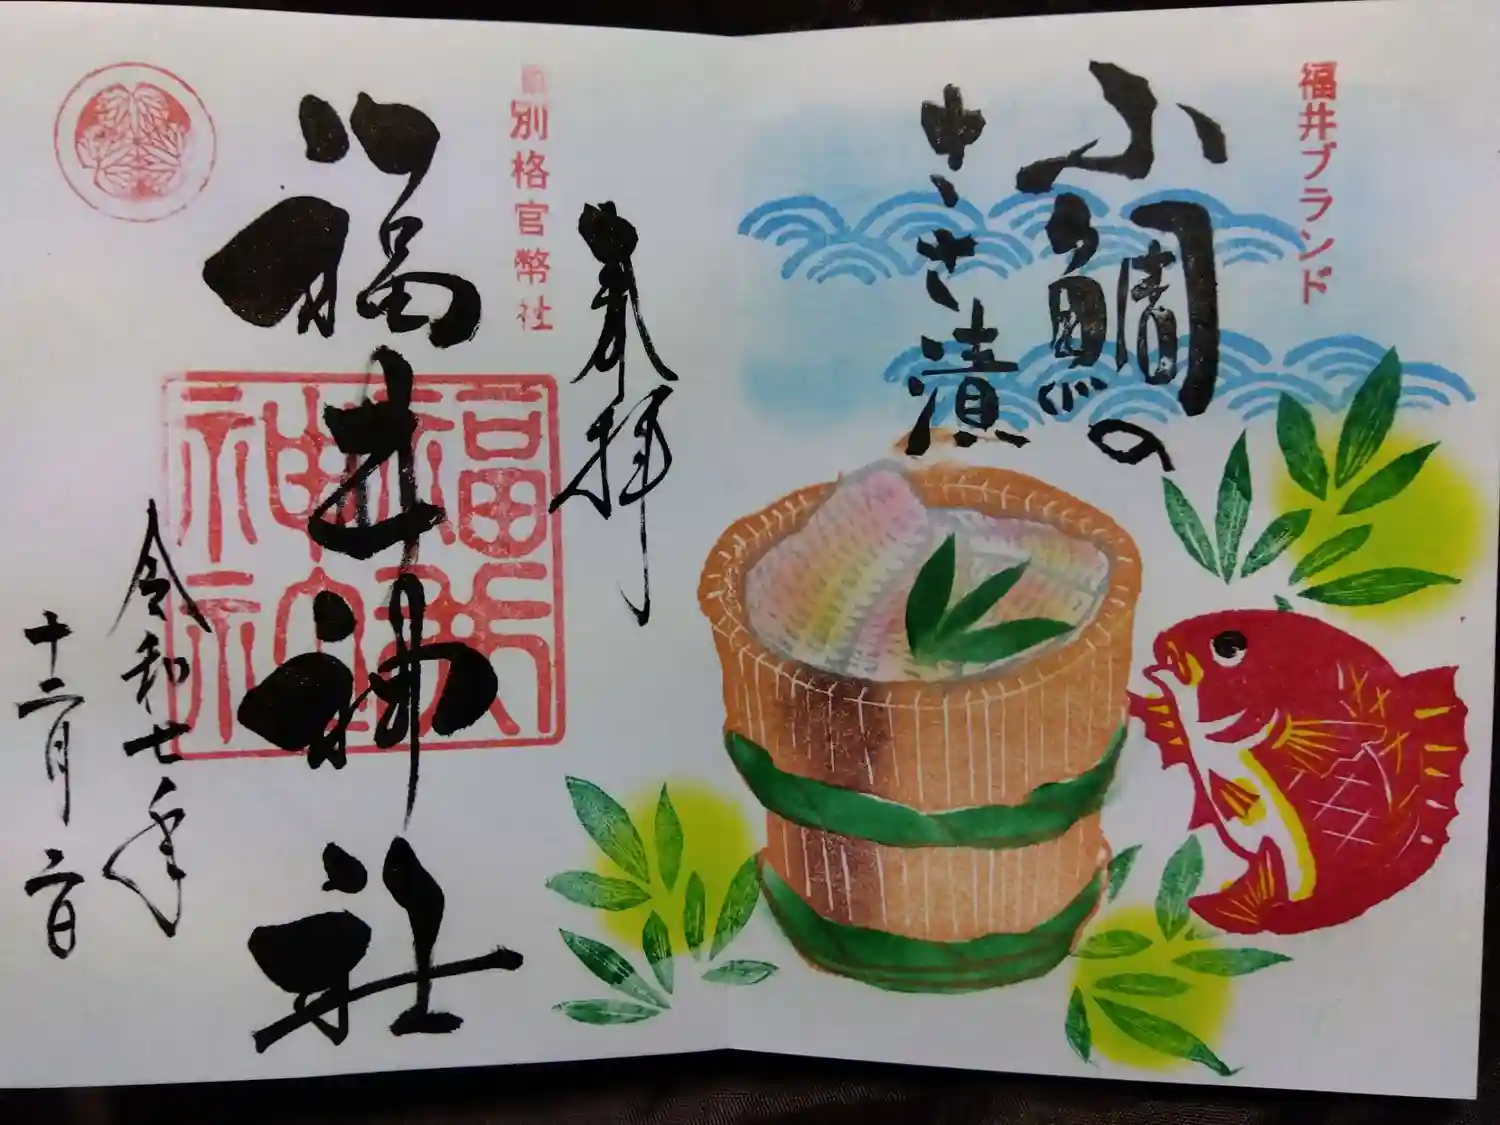 福井ブランド
小鯛の
ささ漬
奉拝
別格官幣社
福井神社
令和七年
十二月二日